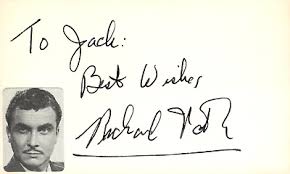 To Jack:
Best Wishes,
Richard